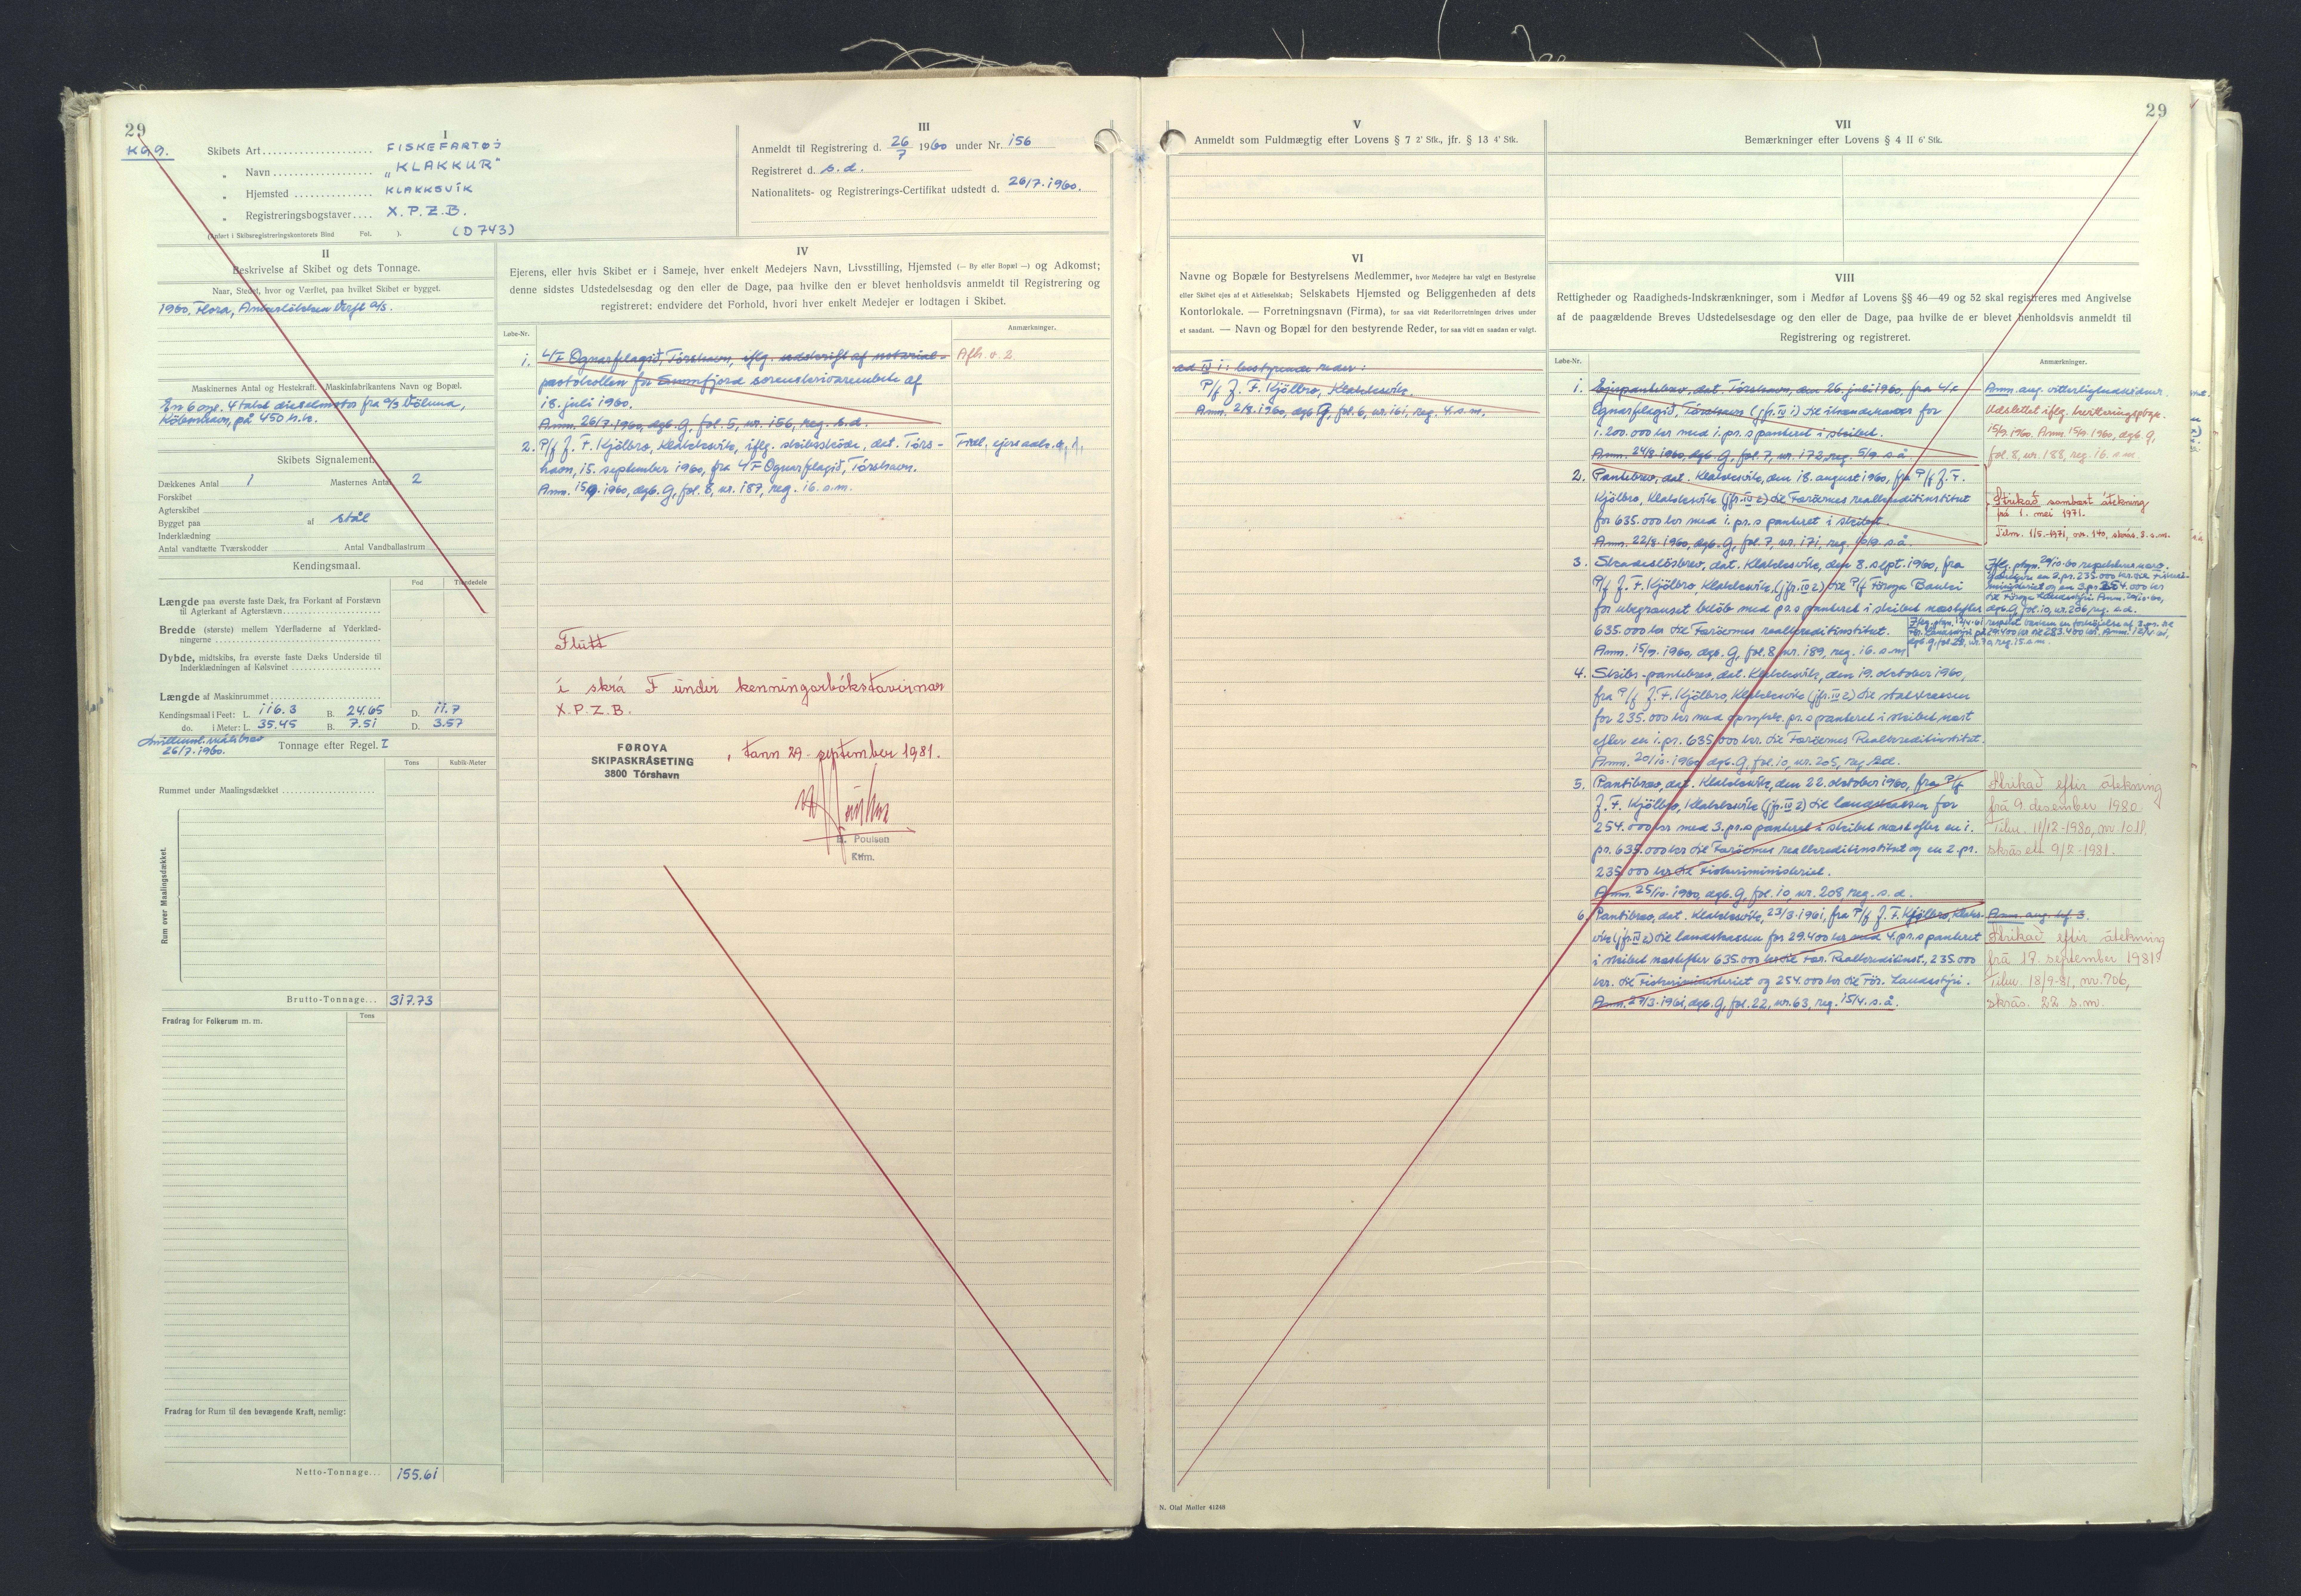 29
KG 9.
I
Skibets Art.................... FISKEFARTØJ
„ Navn................... „KLAKKUR"
„ Hjemsted............... KLAKKSVÍK
„ Registreringsbogstaver.... X.P.Z.B.
(Anført i Skibsregistreringskontorets Bind Fol. ). (D 743)
III
Anmeldt til Registrering d. 26/7 1960 under Nr. 156
Registreret d. s.d.
Nationalitets- og Registrerings-Certifikat udstedt d. 26/7.1960.
II
Beskrivelse af Skibet og dets Tonnage.
Naar, Stedet, hvor og Værftet, paa hvilket Skibet er bygget.
1960. Flora, Ankerløkken Verft a/s.
Maskinernes Antal og Hestekraft. Maskinfabrikantens Navn og Bopæl.
En 6 cyl. 4 takt dieselmotor fra a/s Völund,
København, på 450 h.k.
Skibets Signalement.
Dækkenes Antal 1 Masternes Antal 2
Forskibet
Agterskibet
Bygget paa af stål
Inderklædning
Antal vandtætte Tværskodder Antal Vandballastrum
Kendingsmaal.
Fod Tiendedele
Længde paa øverste faste Dæk, fra Forkant af Forstævn
til Agterkant af Agterstævn
Bredde (største) mellem Yderfladerne af Yderklæd-
ningerne
Dybde, midtskibs, fra øverste faste Dæks Underside til
Inderklædningen af Kølsvinet
Længde af Maskinrummet
Kendingsmaal i Feet: L. 116.3 B. 24.65 D. 11.7
do. i Meter: L. 35.45 B. 7.51 D. 3.57
26/7.1960. Tonnage efter Regel. I
Tons Kubik-Meter
Rummet under Maalingsdækket
Rum over Maalingsdækket.
Brutto-Tonnage... 317.73
Fradrag for Folkerum m. m.
Tons
Fradrag for Rum til den bevægende Kraft, nemlig:
Netto-Tonnage... 155.61
IV
Ejerens, eller hvis Skibet er i Sameje, hver enkelt Medejers Navn, Livsstilling, Hjemsted (— By eller Bopæl —) og Adkomst;
denne sidstes Udstedelsesdag og den eller de Dage, paa hvilke den er blevet henholdsvis anmeldt til Registrering og
registreret; endvidere det Forhold, hvori hver enkelt Medejer er lodtagen i Skibet.
Løbe-Nr. Anmærkninger.
1. L/F Ognarfelagið, Tórshavn, iflg. udskrift af notarial- Afh. v. 2.
protokollen for sorenskriverembete af
18. juli 1960.
Anm. 26/7.1960, dgb. G, fol. 5, nr. 156, reg. s.d.
2. P/f J. F. Kjølbro, Klakksvík, iflg. skibsskøde, dat. Tórs-
havn, 15. september 1960, fra L/F Ognarfelagið, Tórshavn.
Anm. 15/9.1960, dgb. G, fol. 8, nr. 187, reg. 16. s.m.
Flutt
í skrá F undir kenningarbókstavirnar
X.P.Z.B.
FØROYA
SKIPASKRÁSETING
3800 Tórshavn
, tann 29. september 1981.
Poulsen
Ktm.
29
V
Anmeldt som Fuldmægtig efter Lovens § 7 2' Stk., jfr. § 13 4' Stk.
VI
Navne og Bopæle for Bestyrelsens Medlemmer, hvor Medejere har valgt en Bestyrelse
eller Skibet ejes af et Aktieselskab; Selskabets Hjemsted og Beliggenheden af dets
Kontorlokale. — Forretningsnavn (Firma), for saa vidt Rederiforretningen drives under
et saadant. — Navn og Bopæl for den bestyrende Reder, for saa vidt en saadan er valgt.
ad IV 1: bestyrende reder:
P/f J. F. Kjølbro, Klakksvík.
Anm. 2/8.1960, dgb. G, fol. 6, nr. 161, reg. 4. s.m.
VII
Bemærkninger efter Lovens § 4 II 6' Stk.
VIII
Rettigheder og Raadigheds-Indskrænkninger, som i Medfør af Lovens §§ 46—49 og 52 skal registreres med Angivelse
af de paagældende Breves Udstedelsesdage og den eller de Dage, paa hvilke de er blevet henholdsvis anmeldt til
Registrering og registreret.
Løbe-Nr. Anmærkninger.
1. Ejerpantebrev, dat. Tórshavn, den 26. juli 1960, fra L/F
Ognarfelagið, Tórshavn (jfr. IV 1) til ihændehaver for
1.200.000 kr med 1. pr.s panteret i skibet.
Anm. 24/8.1960, dgb. G, fol. 7, nr. 172, reg. 5/9. s.å.
Udslettet iflg. kvitteringspåtgn.
15/9.1960. Anm. 15/9.1960, dgb. G,
fol. 8, nr. 188, reg. 16. s.m.
2. Pantebrev, dat. Klakksvík, den 18. august 1960, fra P/f J. F.
Kjølbro, Klakksvík (jfr. IV 2) til Færöernes realkreditinstitut
for 635.000 kr med 1. pr.s panteret i skibet.
Anm. 22/8.1960, dgb. G, fol. 7, nr. 171, reg. 16/9. s.å.
Strikað sambært átekning
frá 1. mei 1971.
3. Skadesløsbrev, dat. Klakksvík, den 8. sept. 1960, fra
P/f J. F. Kjølbro, Klakksvík (jfr. IV 2) til P/f Føroya Banki
for ubegrænset beløb med pr.s panteret i skibet næstefter
635.000 kr til Færöernes realkreditinstitut.
Anm. 15/9.1960, dgb. G, fol. 8, nr. 189, reg. 16. s.m.
4. Skibs-pantebrev, dat. Klakksvík, den 19. oktober 1960,
fra P/f J. F. Kjølbro, Klakksvík (jfr. IV 2) til statskassen
for 235.000 kr med oprykk. pr.s panteret i skibet næst
efter en 1. pr. 635.000 kr. til Færöernes Realkreditinstitut.
Anm. 20/10.1960, dgb. G, fol. 10, nr. 205, reg. s.d.
5. Pantibræv, dat. Klakksvík, den 22. oktober 1960, fra P/f
J. F. Kjølbro, Klakksvík (jfr. IV 2) til landskassen for
254.000 kr med 3. pr.s panteret i skibet næst efter en 1.
pr. 635.000 kr til Færöernes realkreditinstitut og en 2. pr.
235.000 kr til Fiskeriministeriet.
Anm. 25/10.1960, dgb. G, fol. 10, nr. 208, reg. s.d.
Strikað eftir átekning
frá 9. desember 1980.
Tilm. 11/12-1980, nr. 1011,
skrás. 9/2-1981.
6. Pantibræv, dat. Klakksvík, 23/3.1961, fra P/f J. F. Kjølbro, Klaks-
vík (jfr. IV 2) til landskassen for 29.400 kr med 4. pr.s panteret
i skibet næstefter 635.000 kr til Fær. Realkreditinst., 235.000
kr. til Fiskeriministeriet og 254.000 kr til Før. Landsstýri.
Anm. 27/3.1961, dgb. G, fol. 22, nr. 63, reg. 15/4. s.å.
Strikað eftir átekning
frá 17. september 1981.
Tilm. 18/9-81, nr. 706,
skrás. 22. s.m.
N. Olaf Møller 41248